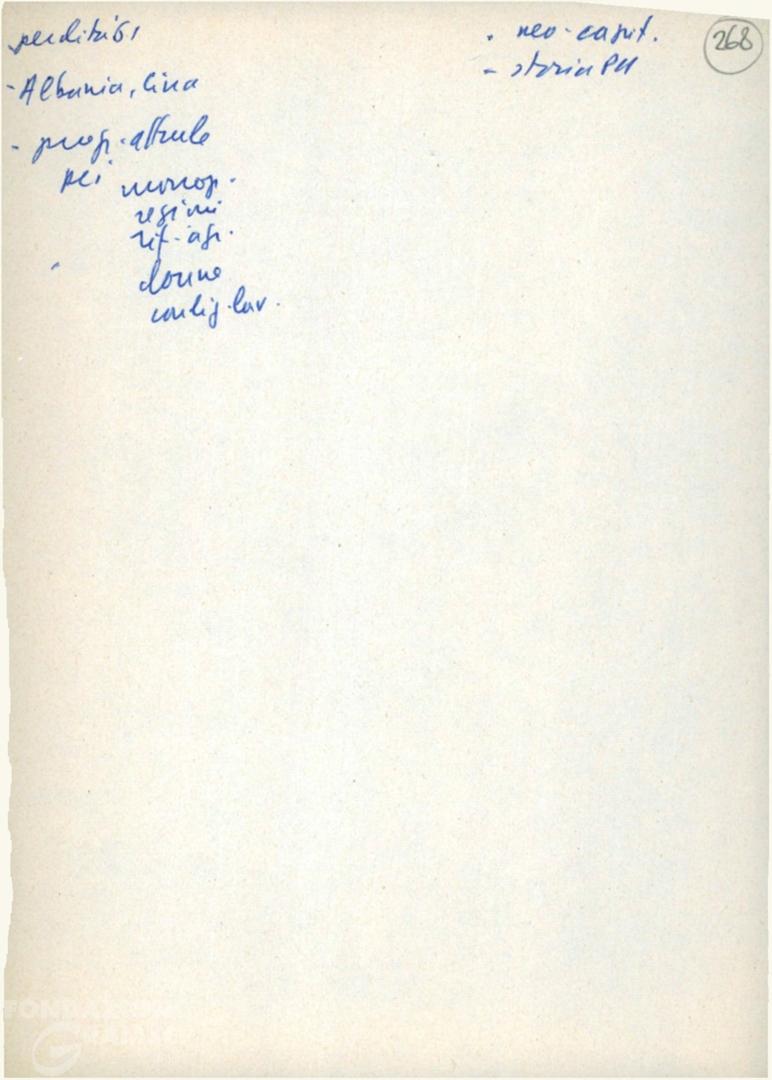 perditi '61
- Albania, Cina
- progr. attuale
pci monop.
regioni
rif. agr.
donne
consigli lav.
- neo-capit.
- storia PCI
268
FONDAZIONE
GRAMSCI